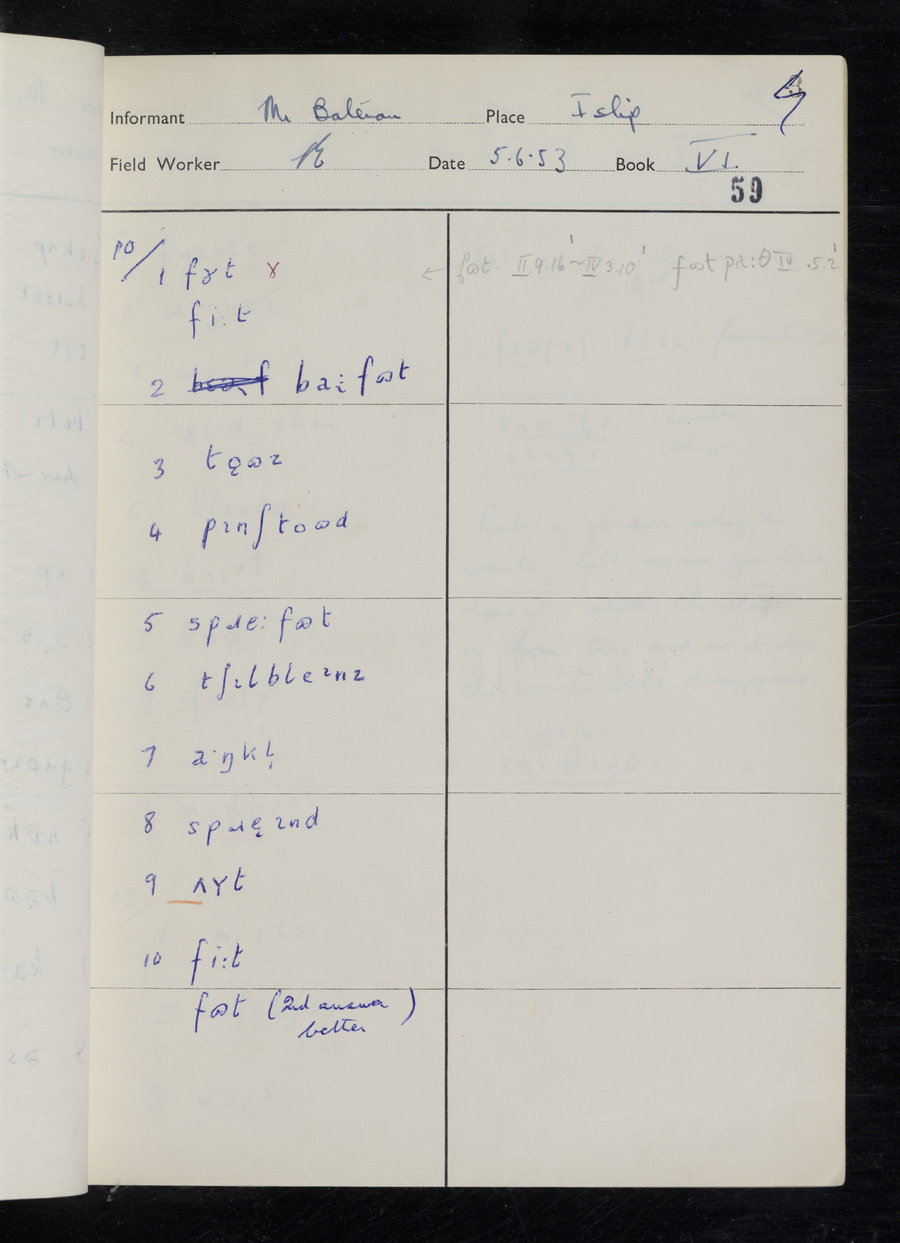 Informant Mr Bateman Place Islip
Field Worker Date 5.6.53 Book VI.
59
10/
1 fɤt ɤ ← fɷt II 9.16 ~ IV 3.10 fɷt pɑ:θ IV .5.2
fi:t
2 ba:i fɷt
3 tǫɷz
4 pɪnʃtoɷd
5 spɹe: fɷt
6 tʃɪlbleɪnz
7 a·ŋkl̩
8 spɹę ɪnd
9 ʌɤt
10 fi:t
fɷt (2nd answer
better)